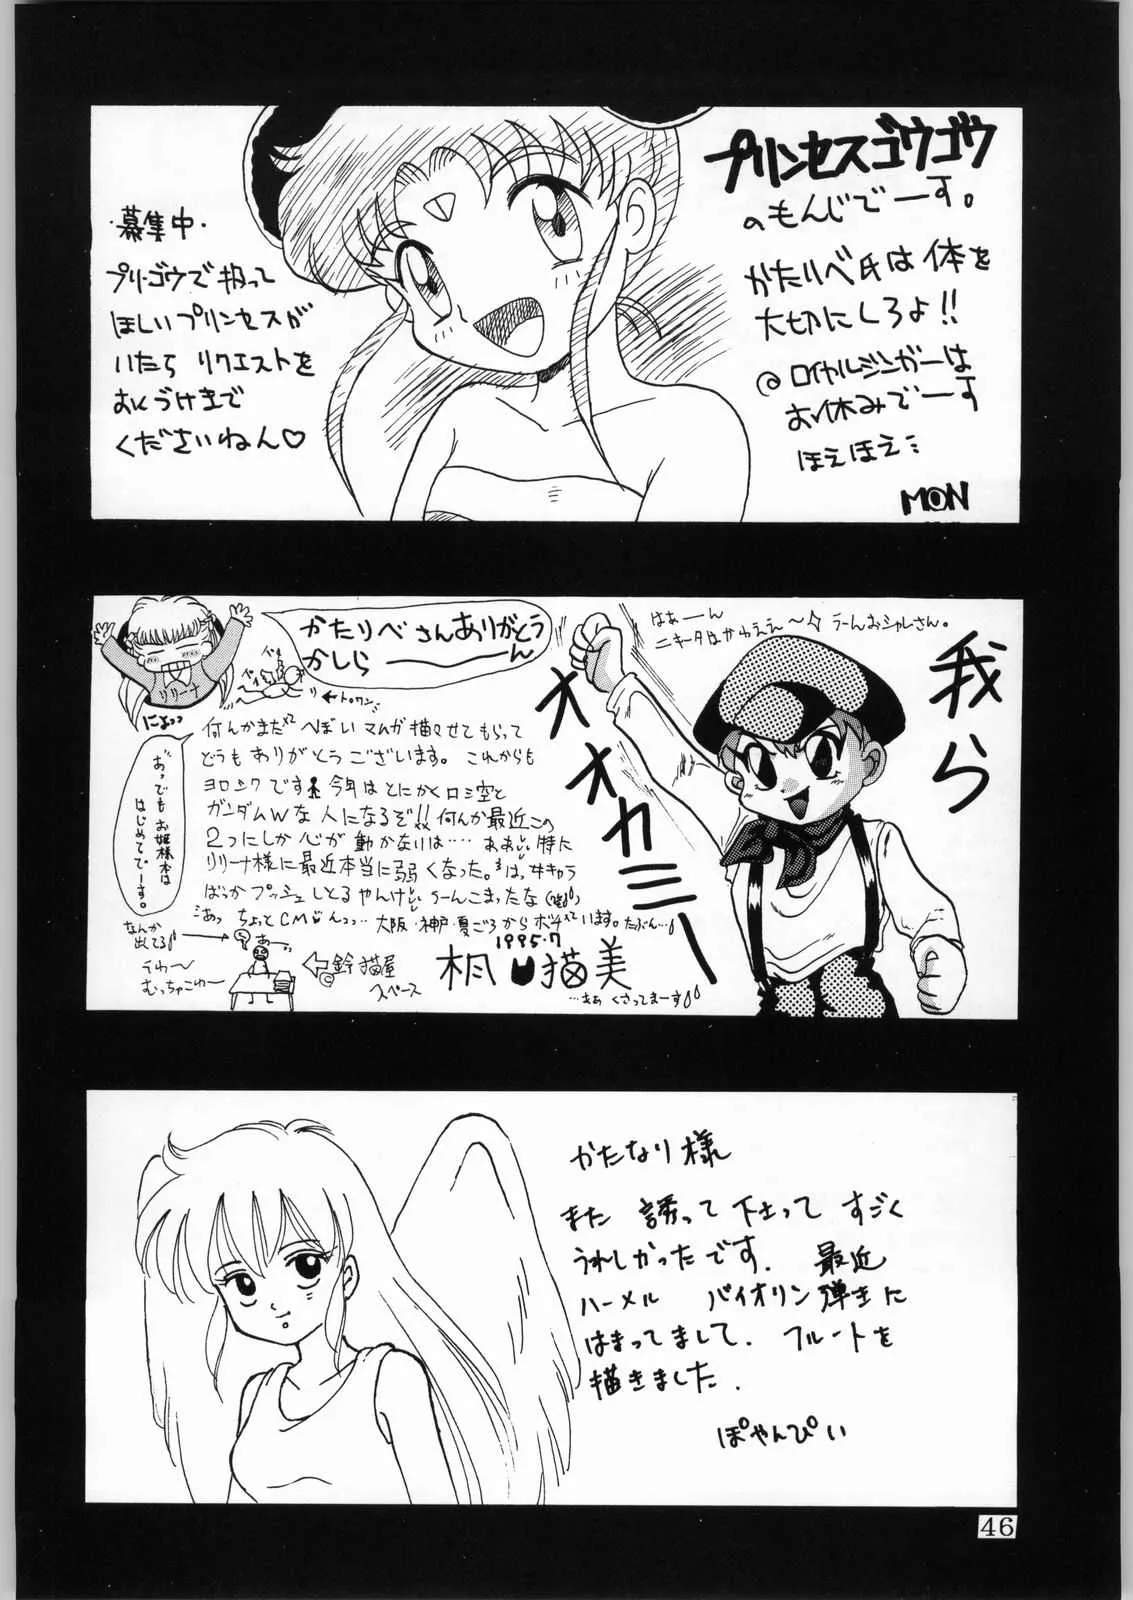 プリンセスゴウゴウ
のもんじでーす。
かたりべ氏は体を
大切にしろよ!!
ロイヤルジンガーは
お休みでーす
ほえほえ
MON
・募集中・
プリ・ゴウで扱って
ほしいプリンセスが
いたら リクエストを
おくづけまで
くださいねん♡
はぁーん
ニキータはかわええ〜 うーんおシャレさん。
我ら
オオカミー
かたりべさんありがとう
かしら――ん
リリーナ
トロワン
にょっっ
おっでもお姫様本は
はじめてでーす。
何んかまた へぼいマンガ描かせてもらって
どうもありがとうございます。これからも
ヨロシクです 今年はとにかくロミ空と
ガンダムWな人になるぞ!!何んか最近この
2つにしか心が動かなりは… ああ 特に
リリーナ様に最近本当に弱くなった。
ばっかプッシュしとるやんけ うーんこまったな
あっ ちょっとCM 大阪・神戸・夏ごろから ています。たぶん…
なんか
出てる
うわ〜
むっちゃこゆ〜
あ〜
鈴猫屋
スペース
1995.7
猫美
…あぁ くさってまーす
かたなり様
また 誘って下さって すごく
うれしかったです. 最近
ハーメル バイオリン弾きに
はまってまして. フルートを
描きました.
ぽやんぴい
46